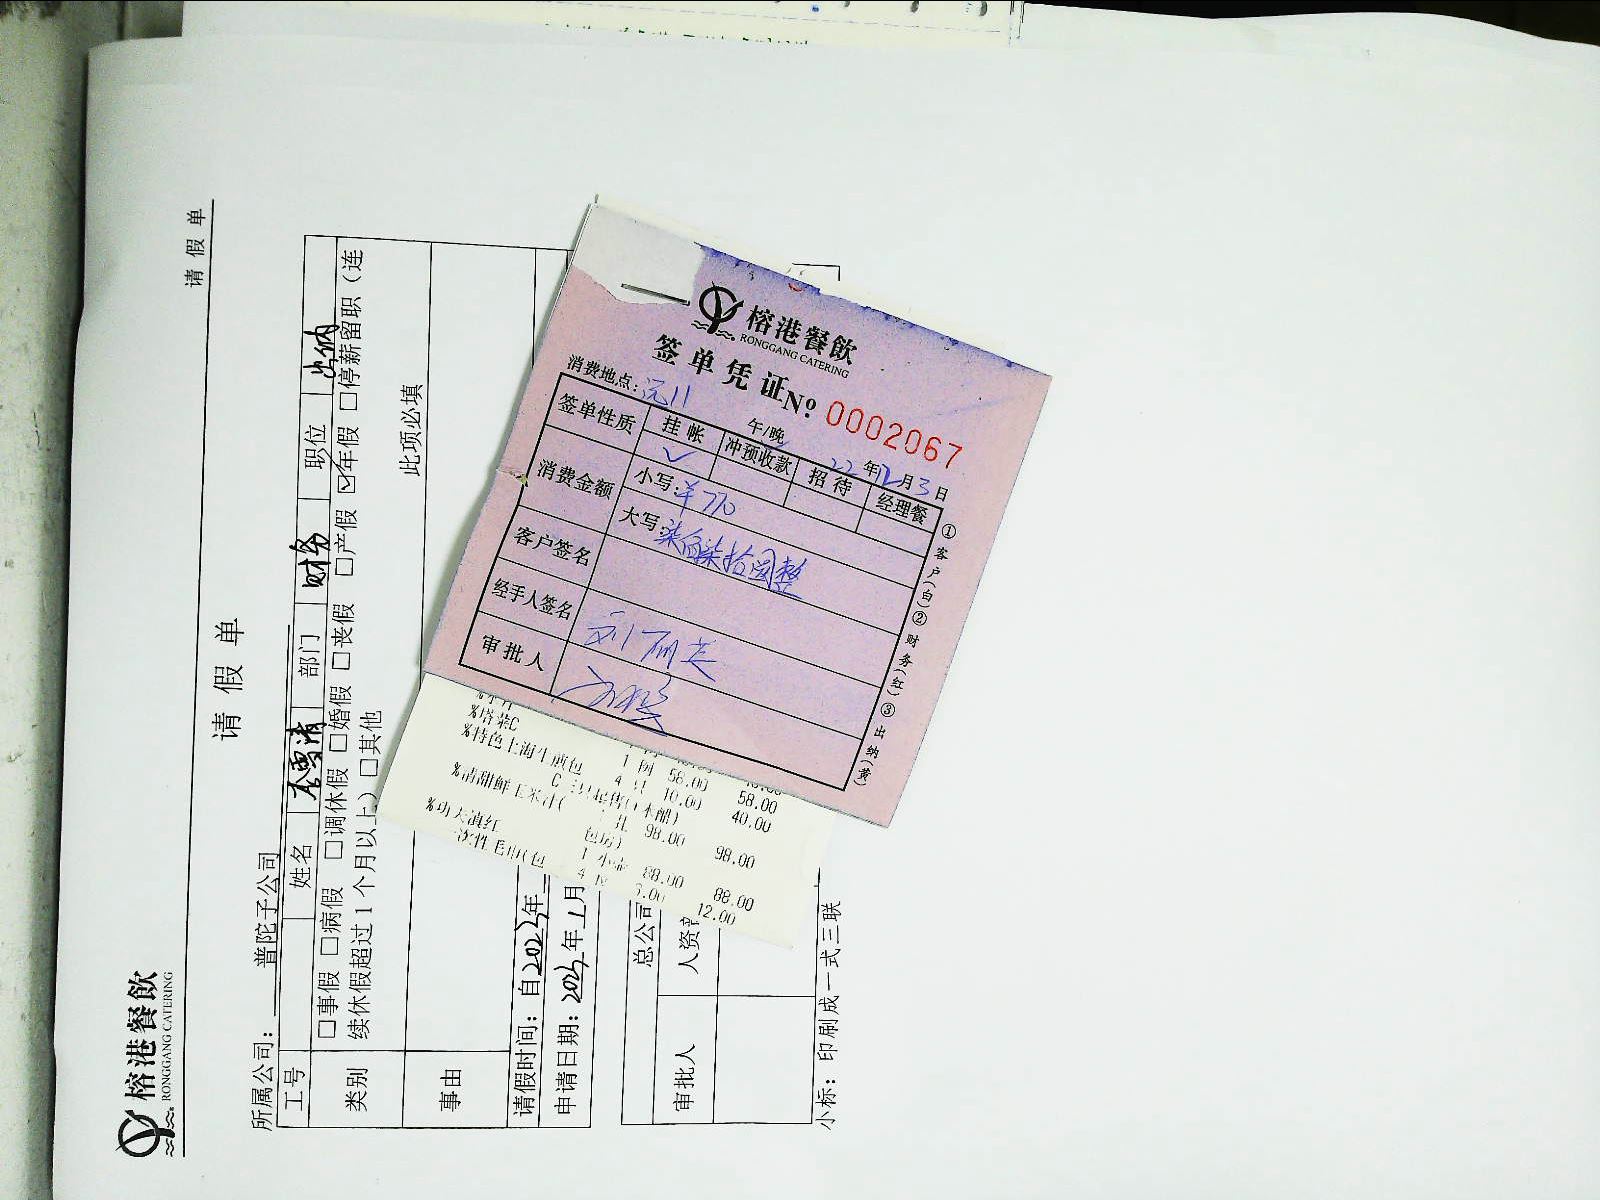 榕港餐飲
RONGGANG CATERING
请假单
请假单
所属公司: 普陀子公司
工号 姓名 李雪清 部门 财务 职位 出纳
类别 □事假 □病假 □调休假 □婚假 □丧假 □产假 ☑年假 □停薪留职（连
续休假超过1个月以上）□其他
事由 此项必填
请假时间: 自2023年
申请日期: 2023年1月
总公司
审批人 人资部
小标: 印刷成一式三联
榕港餐飲
RONGGANG CATERING
签单凭证 No 0002067
消费地点: 午/晚 22年12月3日
签单性质 挂帐 冲预收款 招待 经理餐
✓
消费金额 小写: ¥770
大写: 柒佰柒拾圆整
客户签名
经手人签名
审批人
①客户(白)②财务(红)③出纳(黄)
%塔菜C 1例 58.00 58.00
%特色上海生煎包 4 10.00 40.00
98.00 98.00
包房)
%功夫滇红 1小 88.00 88.00
一次性毛巾(包 4 3.00 12.00